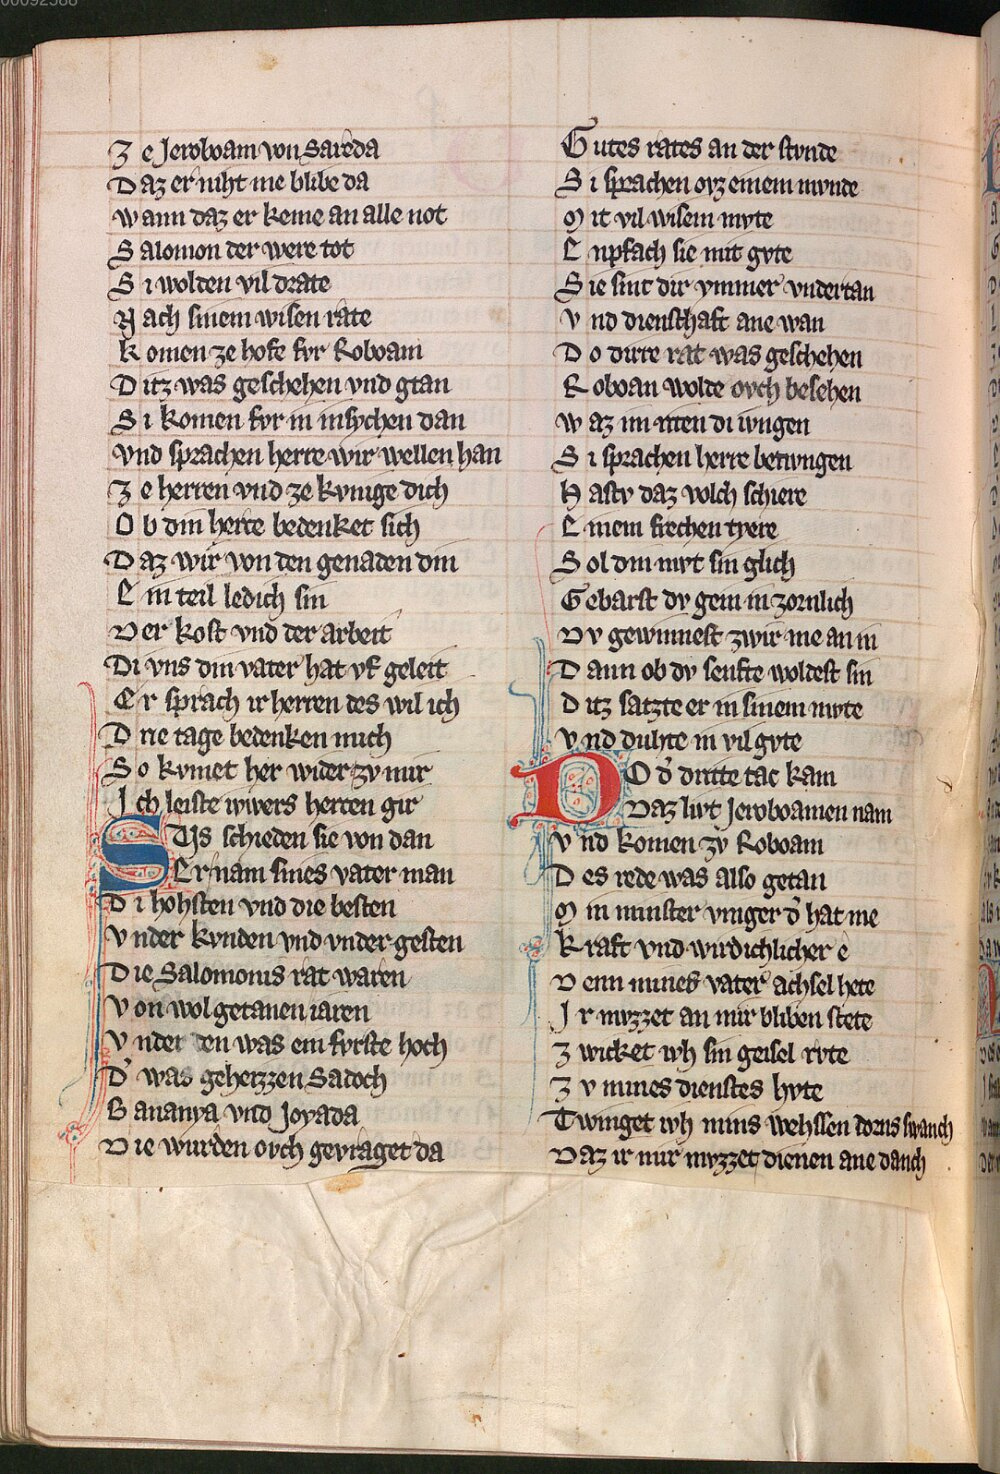 00092588
Ze Jeroboam von Sareda
Daz er niht me blibe da
wann daz er keme an alle not
Salomon der were tot
Si wolden vil drate
Nach sinem wisen rate
komen ze hofe fvr Roboam
Ditz was geschehen vnd gtan
Si komen fvr in insychen dan
vnd sprachen herre wir wellen han
Ze herren vnd ze kvnige dich
Ob din herre bedenket sich
Daz wir von den genaden din
Ein teil ledich sin
Der kost vnd der arbeit
Di vns din vater hat vf geleit
Er sprach ir herren des wil ich
Drie tage bedenken mich
So kvmet her wider zv mir
Ich leiste iwers herren gir
SUs schieden sie von dan
Er nam sines vater man
Di hohsten vnd die besten
Vnder kvnden vnd vnder gesten
Die Salomonis rat waren
Von wolgetanen iaren
Vnder den was ein fvrste hoch
D' was geheizzen Sadoch
Bananya vnd Joyada
Die wurden ovch gevraget da
Gutes rates an der stvnde
Si sprachen ovz einem mvnde
Mit vil wisem mvte
Enpfach sie mit gvte
Sie sint dir ymmer vndertan
Vnd dienschaft ane wan
Do dirre rat was geschehen
Roboan wolde ovch besehen
waz im rieten di ivngen
Si sprachen herre betwngen
Hastv daz volch schiere
Einem siechen tyere
Sol din mvt sin glich
Gebarst dv gein in zornlich
Dv gewinnest zwir me an in
Dann ob dv senfte woldest sin
Ditz satzte er in sinem mvte
Vnd duhte in vil gvte
DO d' dritte tac kam
Daz livt Jeroboamen nam
Vnd komen zv Roboam
Des rede was also getan
Min minster vinger d' hat me
Kraft vnd wirdichlicher e
Denn mines vater achsel hete
Ir mvzzet an mir bliben stete
Zwicket ivh sin geisel rvte
Zv mines dienstes hvte
Twinget ivh mins wehssen dorns swanch
Daz ir mir mvzzet dienen ane danch